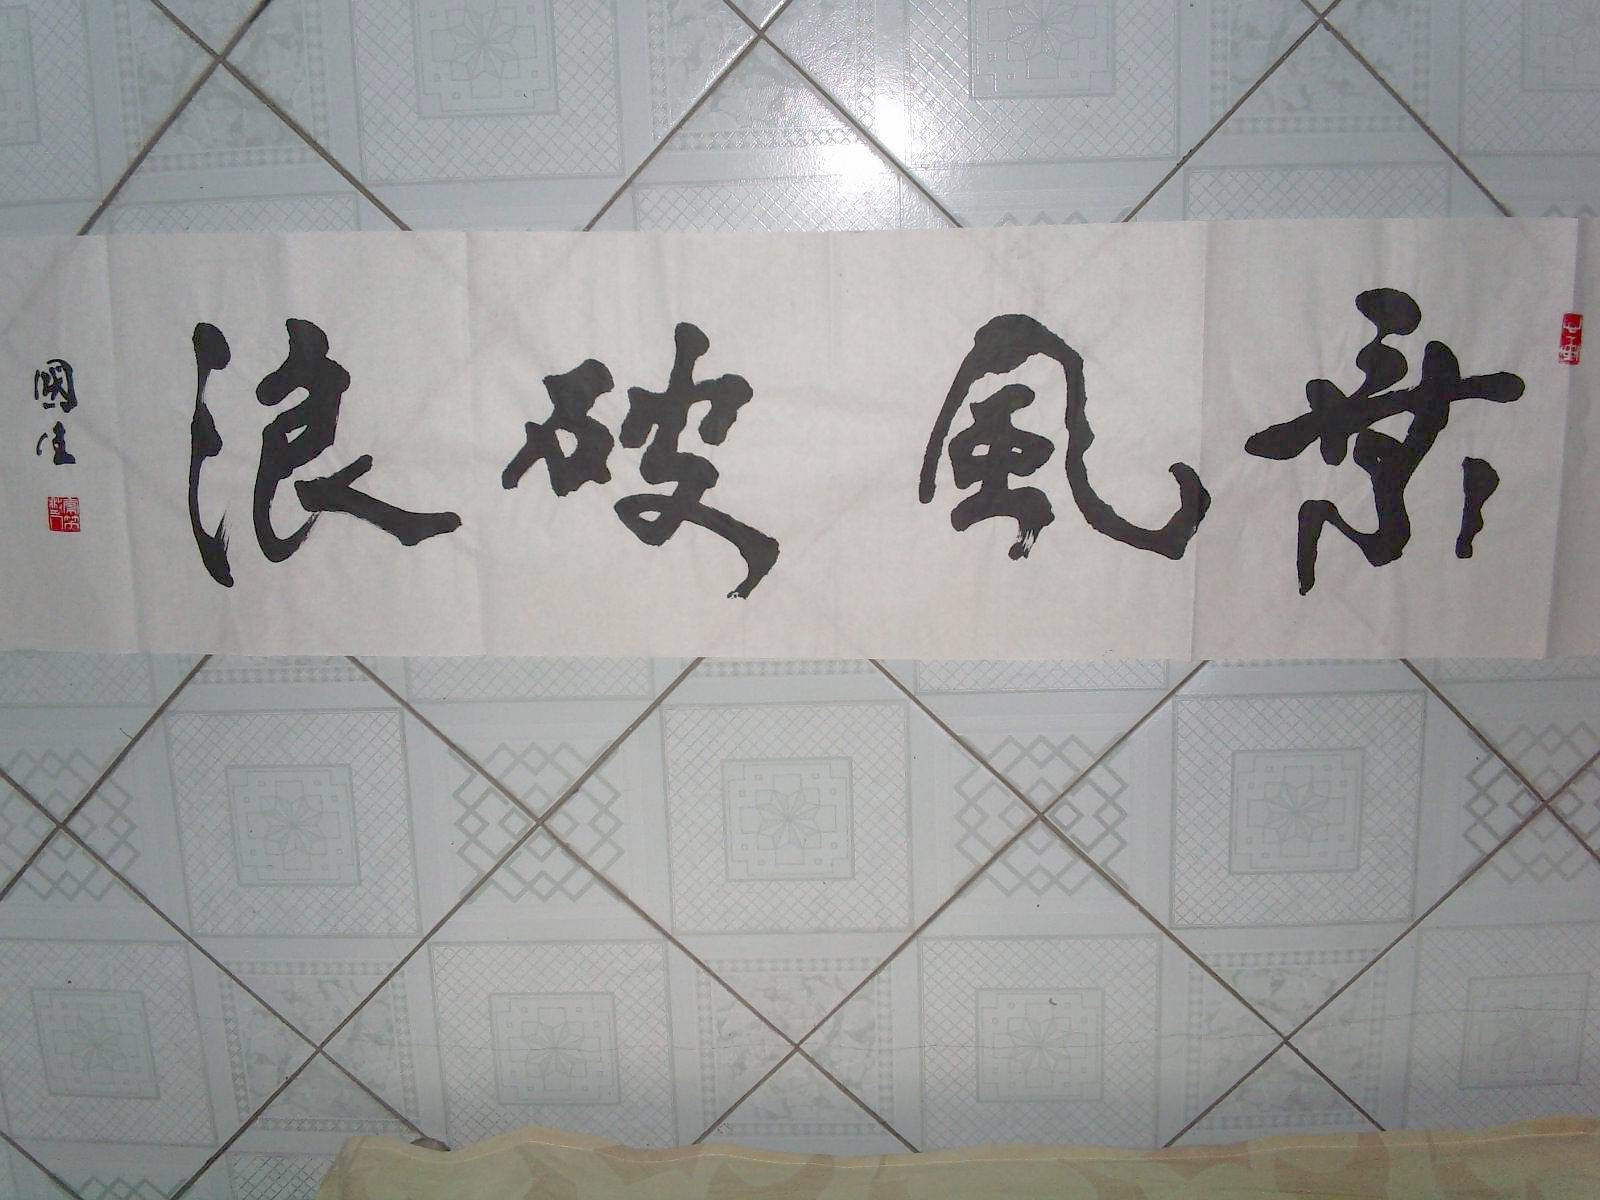 乘風破浪
國佳